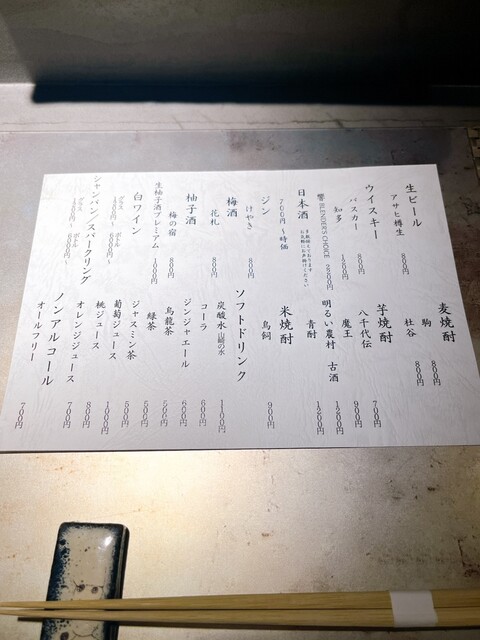 生ビール
アサヒ樽生 800円
ウイスキー
バスカー 800円
知多 1200円
響 BLENDER'S CHOICE 2800円
日本酒
700円〜時価
多数揃えております
お気軽にお声掛けください
ジン
けやき 800円
梅酒
花札 800円
柚子酒
梅の宿 800円
生柚子酒プレミアム 1000円
白ワイン
グラス ボトル
シャンパン/スパークリング
グラス ボトル
麦焼酎
駒 800円
杜谷 800円
芋焼酎
八千代伝 700円
魔王 900円
明るい農村 古酒 1200円
青酎 1200円
米焼酎
鳥飼 900円
ソフトドリンク
炭酸水 山崎の水 1100円
コーラ 600円
ジンジャエール 600円
烏龍茶 500円
緑茶 500円
ジャスミン茶 500円
葡萄ジュース 1000円
桃ジュース 800円
オレンジジュース 700円
ノンアルコール
オールフリー 700円